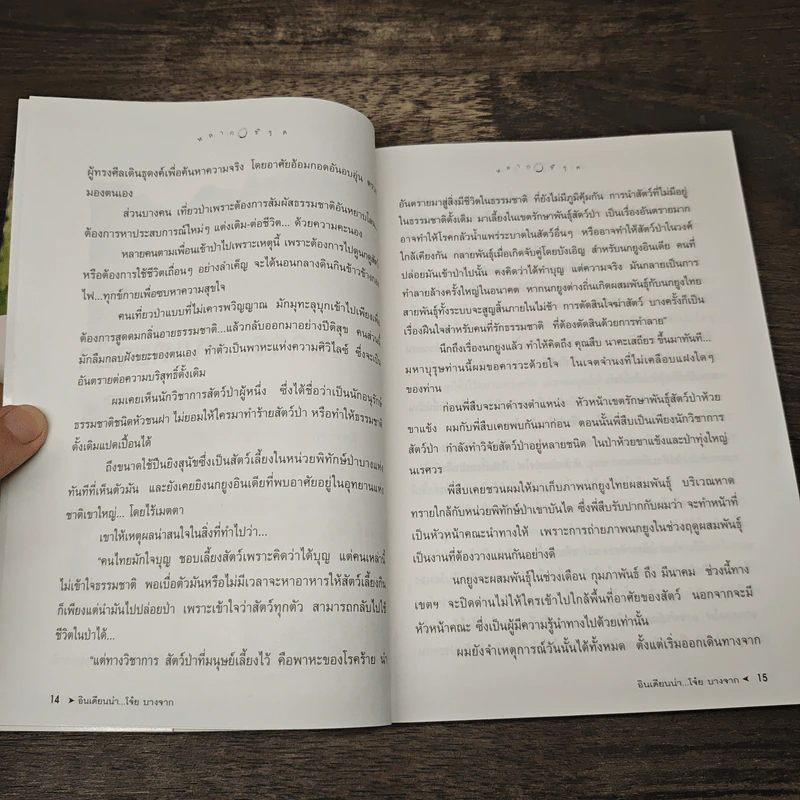 หลายชีวิต
ผู้ทรงศีลเดินธุดงค์เพื่อค้นหาความจริง โดยอาศัยอ้อมกอดอันอบอุ่น
มองตนเอง
ส่วนบางคน เที่ยวป่าเพราะต้องการสัมผัสธรรมชาติอันหยาบโลน
ต้องการหาประสบการณ์ใหม่ๆ แต่งเติม-ต่อชีวิต... ด้วยความคะนอง
หลายคนตามเพื่อนเข้าป่าไปเพราะเหตุนี้ เพราะต้องการไปดูนกดูสัตว์
หรือต้องการใช้ชีวิตเถื่อนๆ อย่างลำเค็ญ จะได้นอนกลางดินกินข้าวข้างกอง
ไฟ...ทุกข์กายเพื่อซบหาความสุขใจ
คนเที่ยวป่าแบบที่ไม่เคารพวิญญาณ มักมุทะลุบุกเข้าไปเพียงเพื่อ
ต้องการสูดดมกลิ่นอายธรรมชาติ...แล้วกลับออกมาอย่างปีติสุข คนส่วนนี้
มักลืมกลบฝังขยะของตนเอง ทำตัวเป็นพาหะแห่งความศิวิไลซ์ ซึ่งจะเป็น
อันตรายต่อความบริสุทธิ์ดั้งเดิม
ผมเคยเห็นนักวิชาการสัตว์ป่าผู้หนึ่ง ซึ่งได้ชื่อว่าเป็นนักอนุรักษ์
ธรรมชาติชนิดหัวชนฝา ไม่ยอมให้ใครมาทำร้ายสัตว์ป่า หรือทำให้ธรรมชาติ
ดั้งเดิมแปดเปื้อนได้
ถึงขนาดใช้ปืนยิงสุนัขซึ่งเป็นสัตว์เลี้ยงในหน่วยพิทักษ์ป่าบางแห่ง
ทันทีที่เห็นตัวมัน และยังเคยยิงนกยูงอินเดียที่พบอาศัยอยู่ในอุทยานแห่ง
ชาติเขาใหญ่... โดยไร้เมตตา
เขาให้เหตุผลน่าสนใจในสิ่งที่ทำไปว่า...
"คนไทยมักใจบุญ ชอบเลี้ยงสัตว์เพราะคิดว่าได้บุญ แต่คนเหล่านี้
ไม่เข้าใจธรรมชาติ พอเบื่อตัวมันหรือไม่มีเวลาจะหาอาหารให้สัตว์เลี้ยงกิน
ก็เพียงแต่นำมันไปปล่อยป่า เพราะเข้าใจว่าสัตว์ทุกตัว สามารถกลับไปใช้
ชีวิตในป่าได้...
"แต่ทางวิชาการ สัตว์ป่าที่มนุษย์เลี้ยงไว้ คือพาหะของโรคร้าย นำ
14 ➤ อินเดียนน่า...โจ๋ย บางจาก
หลายชีวิต
อันตรายมาสู่สิ่งมีชีวิตในธรรมชาติ ที่ยังไม่มีภูมิคุ้มกัน การนำสัตว์ที่ไม่มีอยู่
ในธรรมชาติดั้งเดิม มาเลี้ยงในเขตรักษาพันธุ์สัตว์ป่า เป็นเรื่องอันตรายมาก
อาจทำให้โรคกลัวน้ำแพร่ระบาดในสัตว์อื่นๆ หรืออาจทำให้สัตว์ป่าในวงศ์
ใกล้เคียงกัน กลายพันธุ์เมื่อเกิดจับคู่โดยบังเอิญ สำหรับนกยูงอินเดีย คนที่
ปล่อยมันเข้าป่าไปนั้น คงคิดว่าได้ทำบุญ แต่ความจริง มันกลายเป็นการ
ทำลายล้างครั้งใหญ่ในอนาคต หากนกยูงต่างถิ่นเกิดผสมพันธุ์กับนกยูงไทย
สายพันธุ์ทั้งระบบจะสูญสิ้นภายในไม่ช้า การตัดสินใจฆ่าสัตว์ บางครั้งก็เป็น
เรื่องฝืนใจสำหรับคนที่รักธรรมชาติ ที่ต้องตัดสินด้วยการทำลาย"
นึกถึงเรื่องนกยูงแล้ว ทำให้คิดถึง คุณสืบ นาคะเสถียร ขึ้นมาทันที...
มหาบุรุษท่านนี้ผมขอคารวะด้วยใจ ในเจตจำนงที่ไม่เคลือบแฝงใดๆ
ของท่าน
ก่อนพี่สืบจะมาดำรงตำแหน่ง หัวหน้าเขตรักษาพันธุ์สัตว์ป่าห้วย
ขาแข้ง ผมกับพี่สืบเคยพบกันมาก่อน ตอนนั้นพี่สืบเป็นเพียงนักวิชาการ
สัตว์ป่า กำลังทำวิจัยสัตว์ป่าอยู่หลายชนิด ในป่าห้วยขาแข้งและป่าทุ่งใหญ่
นเรศวร
พี่สืบเคยชวนผมให้มาเก็บภาพนกยูงไทยผสมพันธุ์ บริเวณหาด
ทรายใกล้กับหน่วยพิทักษ์ป่าเขาบันได ซึ่งพี่สืบรับปากกับผมว่า จะทำหน้าที่
เป็นหัวหน้าคณะนำทางให้ เพราะการถ่ายภาพนกยูงในช่วงฤดูผสมพันธุ์
เป็นงานที่ต้องวางแผนกันอย่างดี
นกยูงจะผสมพันธุ์ในช่วงเดือน กุมภาพันธ์ ถึง มีนาคม ช่วงนี้ทาง
เขตฯ จะปิดด่านไม่ให้ใครเข้าไปใกล้พื้นที่อาศัยของสัตว์ นอกจากจะมี
หัวหน้าคณะ ซึ่งเป็นผู้มีความรู้นำทางไปด้วยเท่านั้น
ผมยังจำเหตุการณ์วันนั้นได้ทั้งหมด ตั้งแต่เริ่มออกเดินทางจาก
อินเดียนน่า...โจ๋ย บางจาก ➤ 15